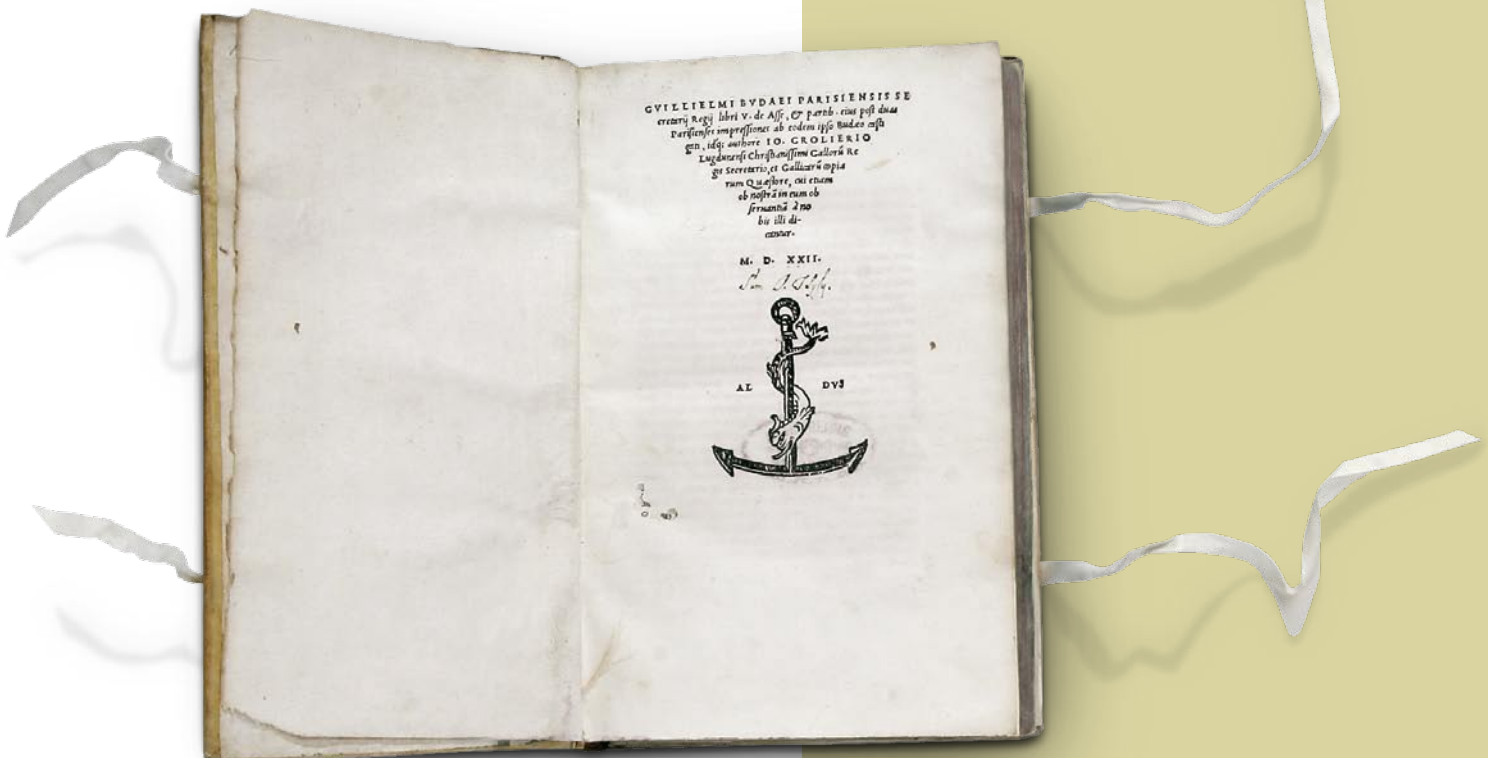 GVILLIELMI BVDAEI PARISIENSIS SE
cretarij Regij libri V. de Asse, & partib. eius post duas
Parisienses impressiones ab eodem ipso Budæo casti
gati, idq; authore IO. GROLIERIO
Lugdunensi Christianissimi Gallorū Re
gis Secretario, et Gallicarū copia
rum Quæstore, cui etiam
ob nostrā in eum ob
seruantiā à no
bis illi di-
cantur.
M. D. XXII.
AL DVS